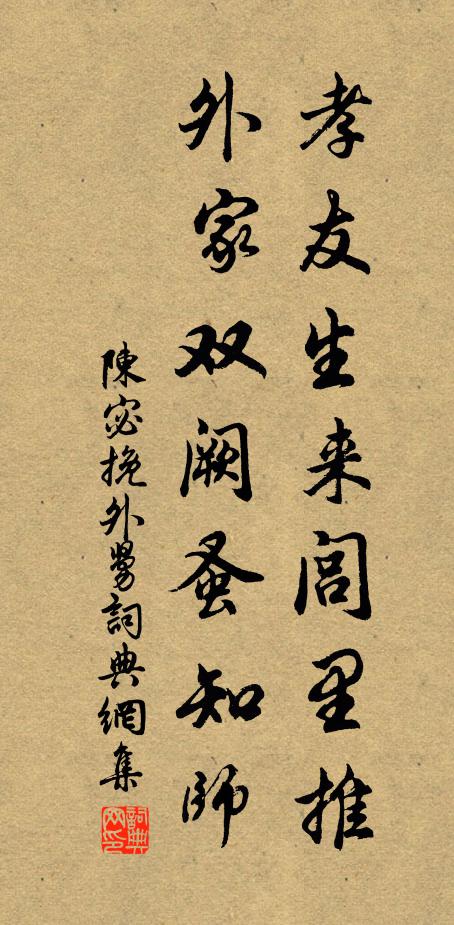 孝友生来闾里推
外家双阙蚤知师
陳宓挽外舅詞典網集
詞典网印